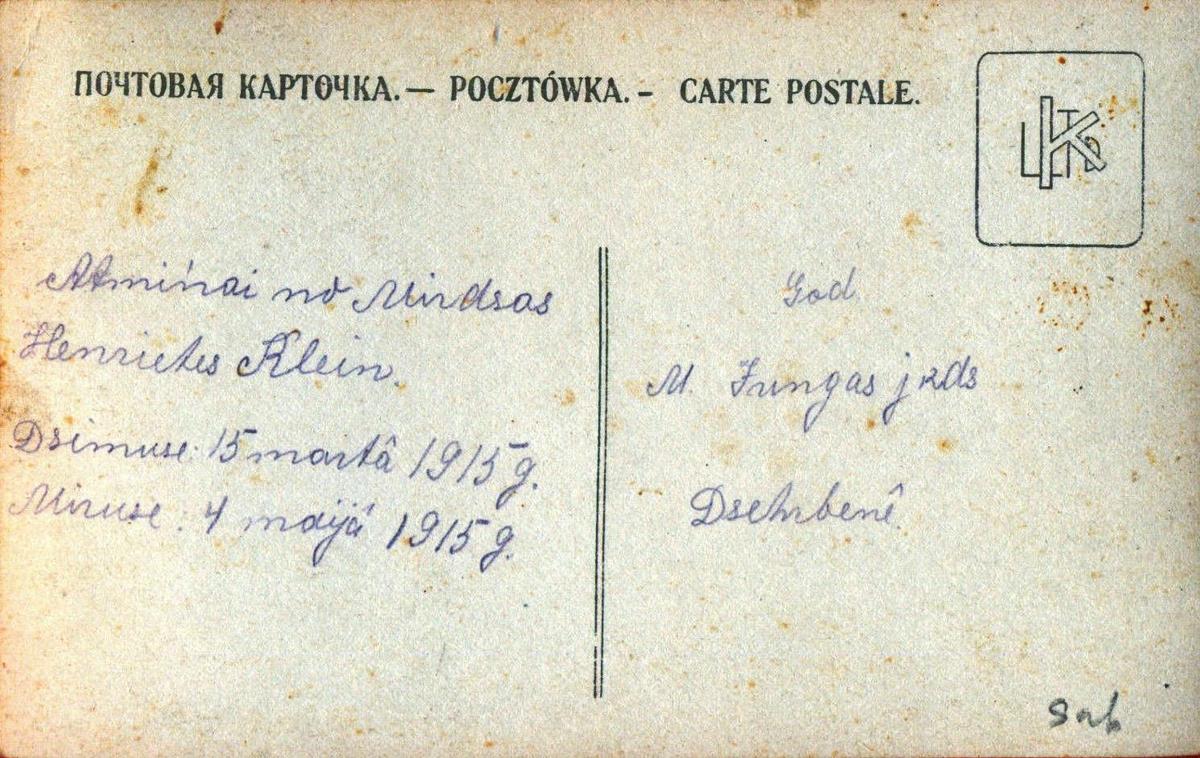 ПОЧТОВАЯ КАРТОЧКА.— POCZTÓWKA.- CARTE POSTALE.
Atmiņai no Mirdsas
Henrietes Klein.
Dsimuse: 15 martâ 1915 g.
Miruse: 4 maijâ 1915 g.
God
M. Jungas jkds
Dsehrbenê.